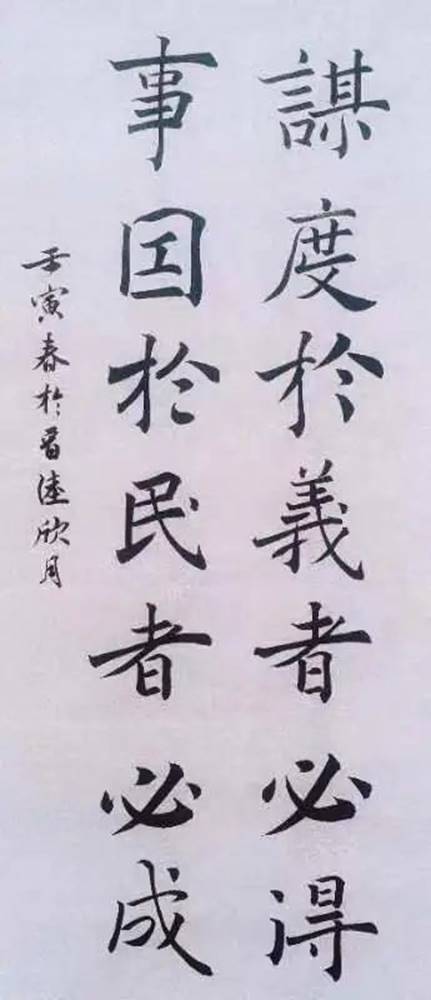 謀度於義者必得
事因於民者必成
壬寅春於晋陸欣月